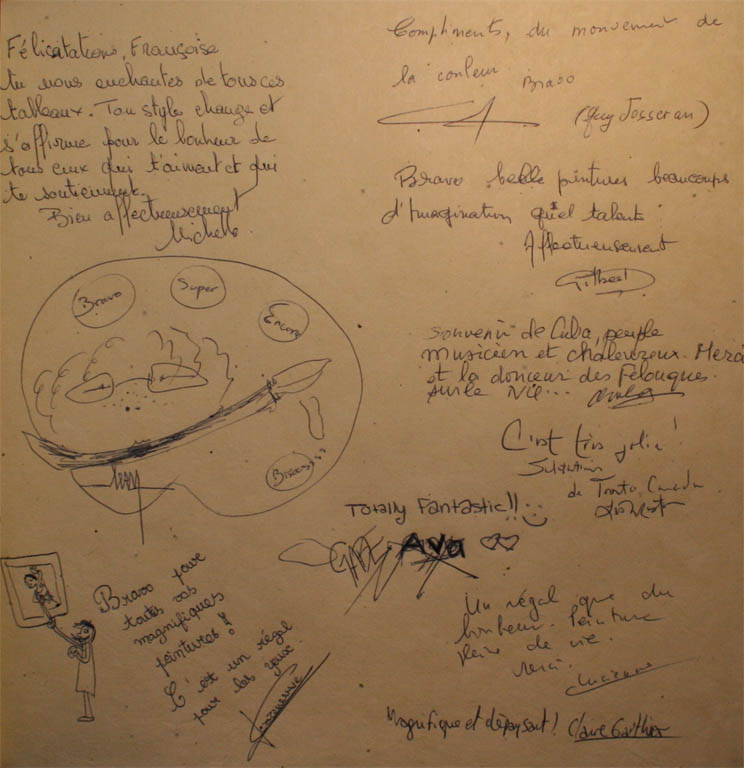 Félicatations, Françoise
tu nous enchantes de tous ces
tableaux. Ton style change et
s'affirme pour le bonheur de
tous ceux qui t'aiment et qui
te soutiennent.
Bien affectueusement
Michele
Bravo
Super
Encore
Bravo pour
toutes vos
magnifiques
peintures !
C'est un régal
pour les yeux.
Compliments, du mouvement de
la couleur
Bravo
(Guy Josseran)
Bravo belle peintures beaucoups
d'Imagination quel talent
Affectueusement
Gilbert
Souvenir de Cuba, peuple
musicien et chaleureux. Merci
et la douceur des Felouques
sur le Nil...
C'est très joli !
de Canada
Totally Fantastic!!
GABE AvA
Un régal que du
bonheur. Peinture
pleine de vie.
Merci.
Magnifique et dépaysant ! Claire Gauthier